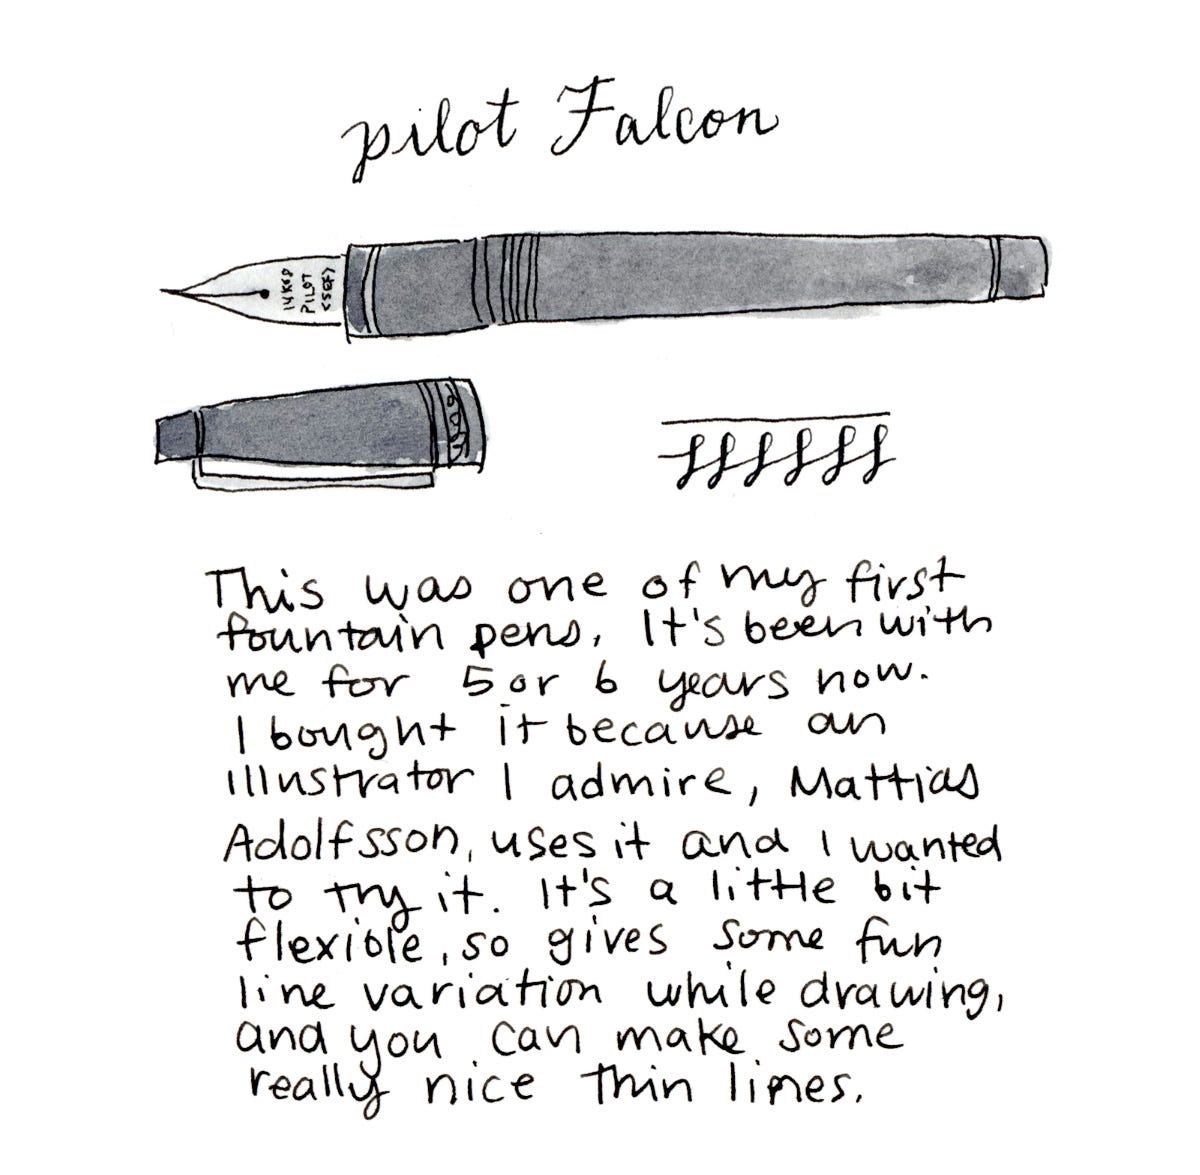 pilot Falcon
14K585
PILOT
<SEF>
This was one of my first
fountain pens. It's been with
me for 5 or 6 years now.
I bought it because an
illustrator I admire, Mattias
Adolfsson, uses it and I wanted
to try it. It's a little bit
flexible, so gives some fun
line variation while drawing,
and you can make some
really nice thin lines.